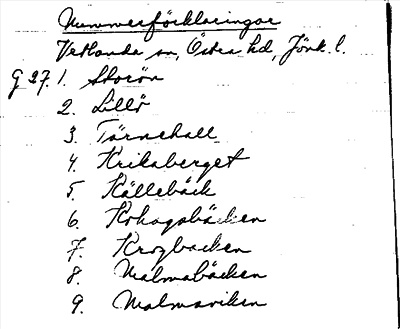 Nummerförklaringar
Vetlanda sn, Östra hd, Jönk. l.
G 27. 1. Storön
2. Lillö
3. Tärnehall
4. Kriksberget
5. Källebäck
6. Kohagsbäcken
7. Krogbacken
8. Malmabäcken
9. Malmaviken